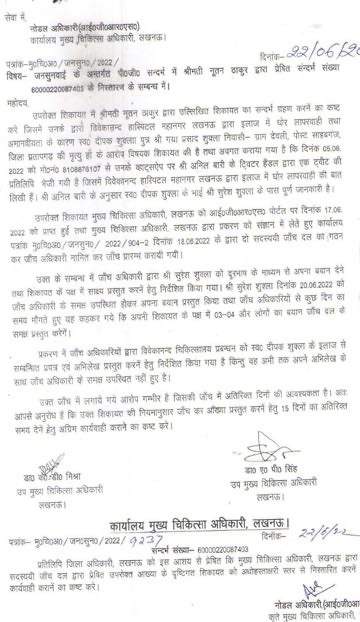 सेवा में,
नोडल अधिकारी(आई०जी०आर०एस०)
कार्यालय मुख्य चिकित्सा अधिकारी, लखनऊ।
पत्रांक- मु०चि०अ० / जनसुन० / 2022 / दिनांक- 22/06/20
विषय- जनसुनवाई के अन्तर्गत पी०जी० सन्दर्भ में श्रीमती नूतन ठाकुर द्वारा प्रेषित सन्दर्भ संख्या
60000220087403 के निस्तारण के सम्बन्ध में।
महोदय,
उपरोक्त शिकायत में श्रीमती नूतन ठाकुर द्वारा उल्लिखित शिकायत का सन्दर्भ ग्रहण करने का कष्ट
करें जिसमें उनके द्वारा विवेकानन्द हास्पिटल महानगर लखनऊ द्वारा इलाज में घोर लापरवाही तथा
अमानवीयता के कारण स्व० दीपक शुक्ला पुत्र श्री गया प्रसाद शुक्ला निवासी- ग्राम देवली, पोस्ट साहबगंज,
जिला प्रतापगढ़ की मृत्यु हो के आरोप विषयक शिकायत की है तथा अवगत कराया गया है कि दिनांक 05.06.
2022 को मो०नं० 8108876107 से उनके व्हाट्सऐप पर श्री अनिल बारी के ट्विटर हैंडल द्वारा एक ट्वीट की
प्रतिलिपि भेजी गयी है जिसमें विवेकानन्द हास्पिटल महानगर लखनऊ द्वारा इलाज में घोर लापरवाही की बात
लिखी हैं। श्री अनिल बारी के अनुसार स्व० दीपक शुक्ला के भाई श्री सुरेश शुक्ला के पास पूर्ण जानकारी है।
उपरोक्त शिकायत मुख्य चिकित्सा अधिकारी, लखनऊ को आई०जी०आर०एस० पोर्टल पर दिनांक 17.06.
2022 को प्राप्त हुई तथा मुख्य चिकित्सा अधिकारी, लखनऊ द्वारा प्रकरण को संज्ञान में लेते हुए कार्यालय
पत्रांक मु०चि०अ० / जनसुन० / 2022 / 904-2 दिनांक 18.06.2022 के द्वारा दो सदस्यीयी जाँच दल का गठन
कर जाँच अधिकारी नामित कर जाँच प्रारम्भ करायी गयी।
उक्त के सम्बन्ध में जाँच अधिकारी द्वारा श्री सुरेश शुक्ला को दूरभाष के माध्यम से अपना बयान देने
तथा शिकायत के पक्ष में साक्ष्य प्रस्तुत करने हेतु निर्देशित किया गया। श्री सुरेश शुक्ला दिनांक 20.06.2022 को
जाँच अधिकारी के समक्ष उपस्थित होकर अपना बयान प्रस्तुत किया तथा जाँच अधिकारियों से कुछ दिन का
समय माँगते हुए यह कहकर गये कि अपनी शिकायत के पक्ष में 03-04 और लोगों का बयान जाँच दल के
समक्ष प्रस्तुत करेगें।
प्रकरण में जाँच अधिकारियों द्वारा विवेकानन्द चिकित्सालय प्रबन्धन को स्व० दीपक शुक्ला के इलाज से
सम्बन्धित प्रपत्र एवं अभिलेख प्रस्तुत करनें हेतु निर्देशित किया गया है किन्तु वह अभी तक अपने अभिलेख के
साथ जाँच अधिकारी के समक्ष उपस्थित नहीं हुए है।
उक्त जाँच में लगाये गये आरोप गम्भीर है जिसकी जाँच में अतिरिक्त दिनों की आवश्यकता है। अतः
आपसे अनुरोध है कि उक्त शिकायत की नियमानुसार जाँच कर आख्या प्रस्तुत करनें हेतु 15 दिनों का अतिरिक्त
समय देने हेतु अग्रिम कार्यवाही कराने का कष्ट करे।
डा० के०डी० मिश्रा डा० ए पी सिंह
उप मुख्य चिकित्सा अधिकारी उप मुख्य चिकित्सा अधिकारी
लखनऊ। लखनऊ।
कार्यालय मुख्य चिकित्सा अधिकारी, लखनऊ।
पत्रांक- मु०चि०अ० / जन०सुन० / 2022 / 9237 दिनांक- 22/6/22
सन्दर्भ संख्या- 60000220087403
प्रतिलिपि जिला अधिकारी, लखनऊ को इस आशय से प्रेषित कि मुख्य चिकित्सा अधिकारी, लखनऊ द्वारा
सदस्यीयी जाँच दल द्वारा प्रेषित उपरोक्त आख्या के दृष्टिगत शिकायत को अधोहस्ताक्षरी स्तर से निस्तारित करनें
कार्यवाही कराने का कष्ट करे।
नोडल अधिकारी(आई०जी०आर०
कृते मुख्य चिकित्सा अधिकारी,